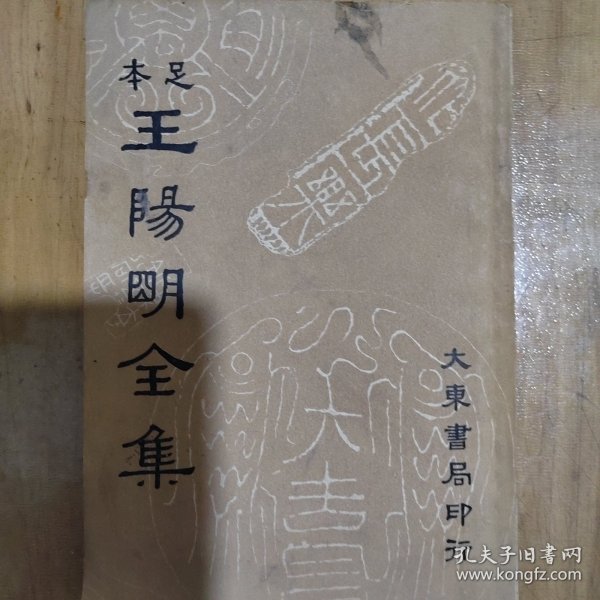 足本
王陽明全集
大東書局印行
大吉
孔夫子旧书网
www.kongfz.com